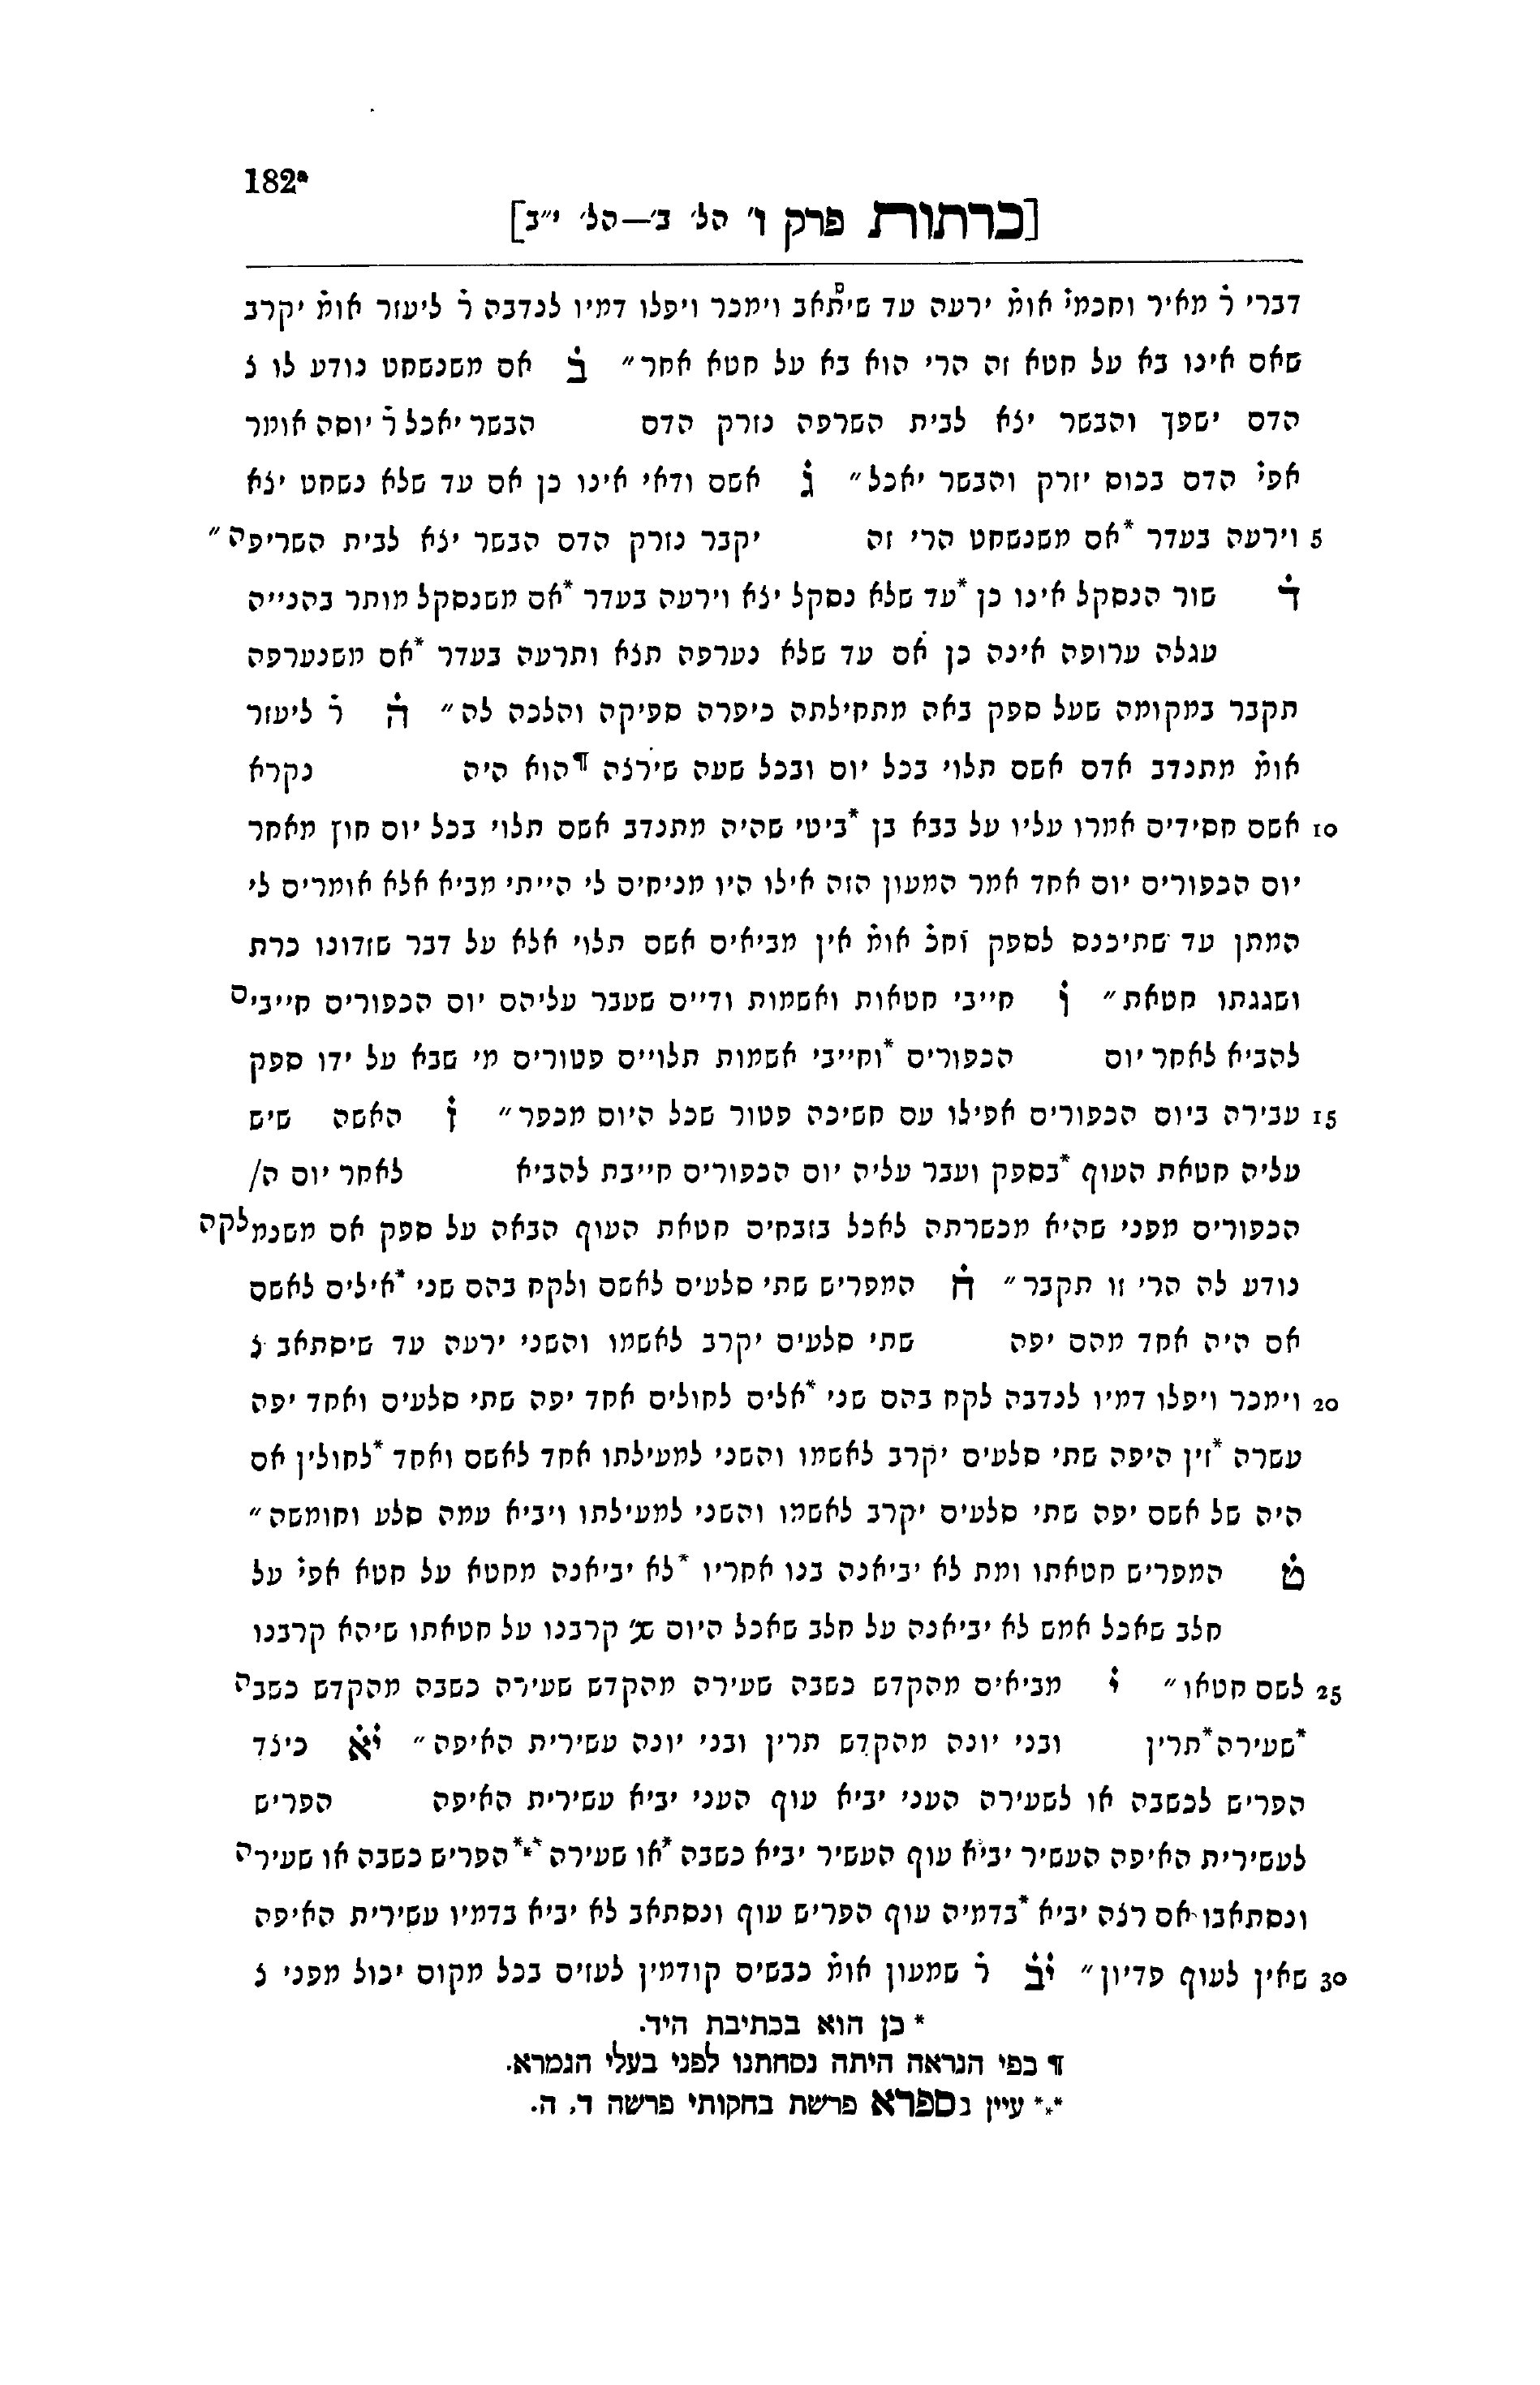 182a
[כרתות פרק ו' הל' ב'—הל' י״ב]
דברי ר̇ מאיר וחכמי̇ אומ̇ ירעה עד שיסתאב וימכר ויפלו דמיו לנדבה ר̇ ליעזר אומ̇ יקרב
שאם אינו בא על חטא זה הרי הוא בא על חטא אחר״ ב̇ אם משנשחט נודע לו צ
הדם ישפך והבשר יצא לבית השרפה נזרק הדם הבשר יאכל ר̇ יוסה אומר
אפי̇ הדם בכוס יזרק והבשר יאכל״ ג̇ אשם ודאי אינו כן אם עד שלא נשחט יצא
5 וירעה בעדר *אם משנשחט הרי זה יקבר נזרק הדם הבשר יצא לבית השריפה״
ד̇ שור הנסקל אינו כן *עד שלא נסקל יצא וירעה בעדר *אם משנסקל מותר בהנייה
עגלה ערופה אינה כן אם עד שלא נערפה תצא ותרעה בעדר *אם משנערפה
תקבר במקומה שעל ספק באה מתחילתה כיפרה ספיקה והלכה לה״ ה̇ ר̇ ליעזר
אומ̇ מתנדב אדם אשם תלוי בכל יום ובכל שעה שירצה ¶הוא היה נקרא
10 אשם חסידים אמרו עליו על בבא בן *ביטי שהיה מתנדב אשם תלוי בכל יום חוץ מאחר
יום הכפורים יום אחד אמר המעון הזה אילו היו מניחים לי הייתי מביא אלא אומרים לי
המתן עד שתיכנס לספק וחכ̇ אומ̇ אין מביאים אשם תלוי אלא על דבר שזדונו כרת
ושגגתו חטאת״ ו̇ חייבי חטאות ואשמות ודיים שעבר עליהם יום הכפורים חייבים
להביא לאחר יום הכפורים *וחייבי אשמות תלויים פטורים מי שבא על ידו ספק
15 עבירה ביום הכפורים אפילו עם חשיכה פטור שכל היום מכפר״ ז̇ האשה שיש
עליה חטאת העוף *בספק ועבר עליה יום הכפורים חייבת להביא לאחר יום ה/
הכפורים מפני שהיא מכשרתה לאכל בזבחים חטאת העוף הבאה על ספק אם משנמלקה
נודע לה הרי זו תקבר״ ח̇ המפריש שתי סלעים לאשם ולקח בהם שני *אילים לאשם
אם היה אחד מהם יפה שתי סלעים יקרב לאשמו והשני ירעה עד שיסתאב צ
20 וימכר ויפלו דמיו לנדבה לקח בהם שני *אלים לחולים אחד יפה שתי סלעים ואחד יפה
עשרה *זין היפה שתי סלעים יקרב לאשמו והשני למעילתו אחד לאשם ואחד *לחולין אם
היה של אשם יפה שתי סלעים יקרב לאשמו והשני למעילתו ויביא עמה סלע וחומשה״
ט̇ המפריש חטאתו ומת לא יביאנה בנו אחריו *לא יביאנה מחטא על חטא אפי̇ על
חלב שאכל אמש לא יביאנה על חלב שאכל היום שנ' קרבנו על חטאתו שיהא קרבנו
25 לשם חטאו״ י̇ מביאים מהקדש כשבה שעירה מהקדש שעירה כשבה מהקדש כשבה
*שעירה*תרין ובני יונה מהקדש תרין ובני יונה עשירית האיפה״ יא̇ כיצד
הפריש לכשבה או לשעירה העני יביא עוף העני יביא עשירית האיפה הפריש
לעשירית האיפה העשיר יביא עוף העשיר יביא כשבה *או שעירה ***הפריש כשבה או שעירה
ונסתאבו אם רצה יביא *בדמיה עוף הפריש עוף ונסתאב לא יביא בדמיו עשירית האיפה
30 שאין לעוף פדיון״ יב̇ ר̇ שמעון אומ̇ כבשים קודמין לעזים בכל מקום יכול מפני צ
* כן הוא בכתיבת היד.
¶ כפי הנראה היתה נסחתנו לפני בעלי הגמרא.
*** עיין בספרא פרשת בחקותי פרשה ד, ה.